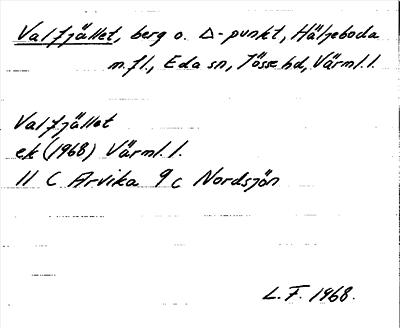 Valfjället, berg o. △-punkt, Häljeboda
m.fl., Eda sn, Jösse hd, Värml.l.
Valfjället
ek (1968) Värml.l.
11 C Arvika 9c Nordsjön
L.F. 1968.